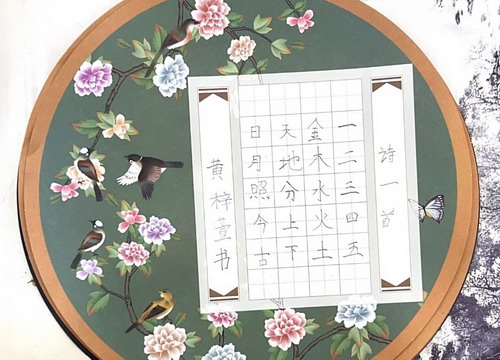 诗一首
一二三四五
金木水火土
天地分上下
日月照今古
黄梓萱书